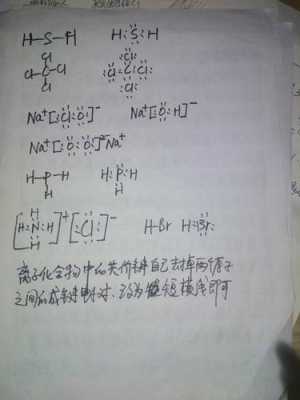 H-S-H H:S:H
Cl
Cl-C-Cl :Cl:C:Cl:
Cl :Cl:
Na⁺[:Cl:O:]⁻ Na⁺[:O:H]⁻
Na⁺[:O:O:]²⁻Na⁺
H-P-H H:P:H
H H
[H:N:H]⁺[:Cl:]⁻ H-Br H:Br:
离子化合物中的共价键自己去掉两原子
之间的成键电子对、改为短横线即可